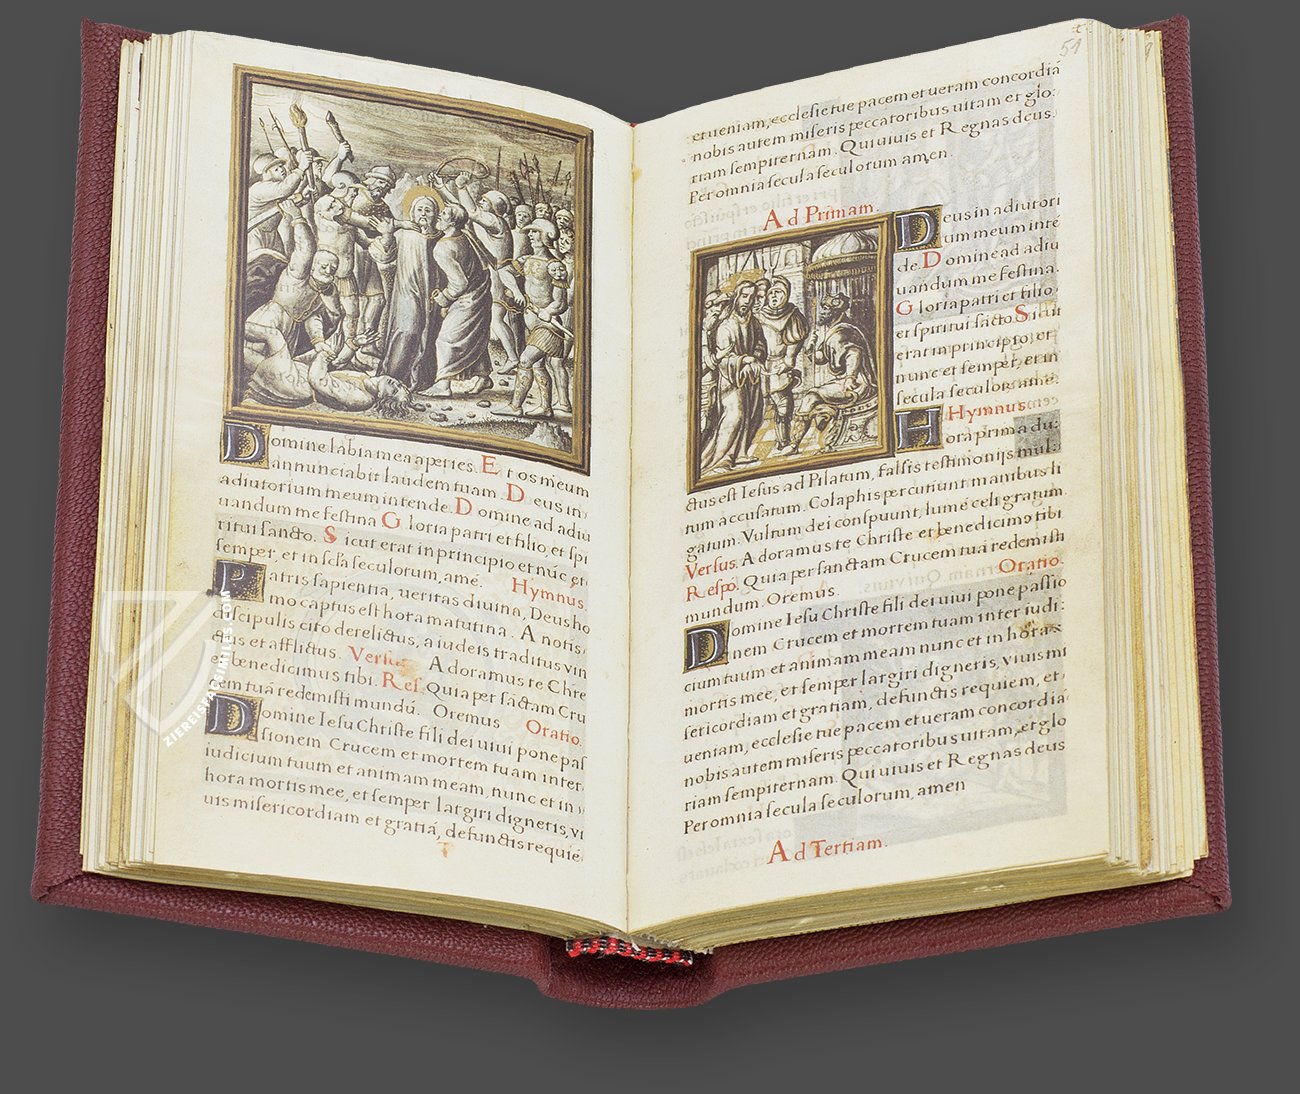 Domine labia mea aperies. Et os meum
annunciabit laudem tuam. Deus in
adiutorium meum intende. Domine ad adiu
uandum me festina Gloria patri et filio, et spi
ritui sancto. Sicut erat in principio et nũc et
semper et in scl̃a seculorum, amẽ. Hymnus.
Patris sapientia, ueritas diuina, Deus ho
mo captus est hora matutina. A notis
discipulis cito derelictus, a iudeis traditus vin
ctus et afflictus. Versus. Adoramus te Chre
et benedicimus tibi. Res. Quia per sãctam Cru
cem tuã redemisti mundũ. Oremus Oratio.
Domine Iesu Christe fili dei uiui pone pas
sionem Crucem et mortem tuam inter
iudicium tuum et animam meam, nunc et in
hora mortis mee, et semper largiri digneris, vi
uis misericordiam et gratiã, defunctis requiẽ
51
et ueniam, ecclesie tue pacem et ueram concordiã
nobis autem miseris peccatoribus uitam et glo:
riam sempiternam. Qui uiuis et Regnas deus.
Per omnia secula seculorum amen.
Ad Primam.
Deus in adiutori
um meum inte
de. Domine ad adiu
uandum me festina.
Gloria patri et filio
et spiritui sãcto. Sicut
erat in principio, et
nunc et semper, et in
secula seculor. amẽ.
Hymnus.
Hora prima du:
ctus est Iesus ad Pilatum, falsis testimonijs mul:
tum accusatum. Colaphis percutiunt manibus li
gatum. Vultum dei conspuunt, lumẽ celi gratum.
Versus. Adoramus te Christe et benedicimꝰ tibi
Respo. Quia per sanctam Crucem tuã redemisti
mundum. Oremus. Oratio.
Domine Iesu Christe fili dei uiui pone pãssio
nem Crucem et mortem tuam inter iudi:
cium tuum et animam meam nunc et in hora
mortis mee, et semper largiri digneris, viuis mi
sericordiam et gratiam, defunctis requiem, et
ueniam, ecclesie tue pacem et ueram concordia
nobis autem miseris peccatoribus uitam, et glo
riam sempiternam. Qui uiuis et Regnas deus
Per omnia secula seculorum, amen
Ad Tertiam.
ZIEREIS FACSIMILES.COM